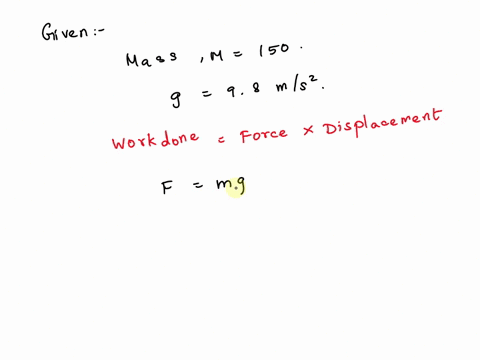 Given:-
Mass, M = 150.
g = 9.8 m/s².
Workdone = Force × Displacement
F = m.g